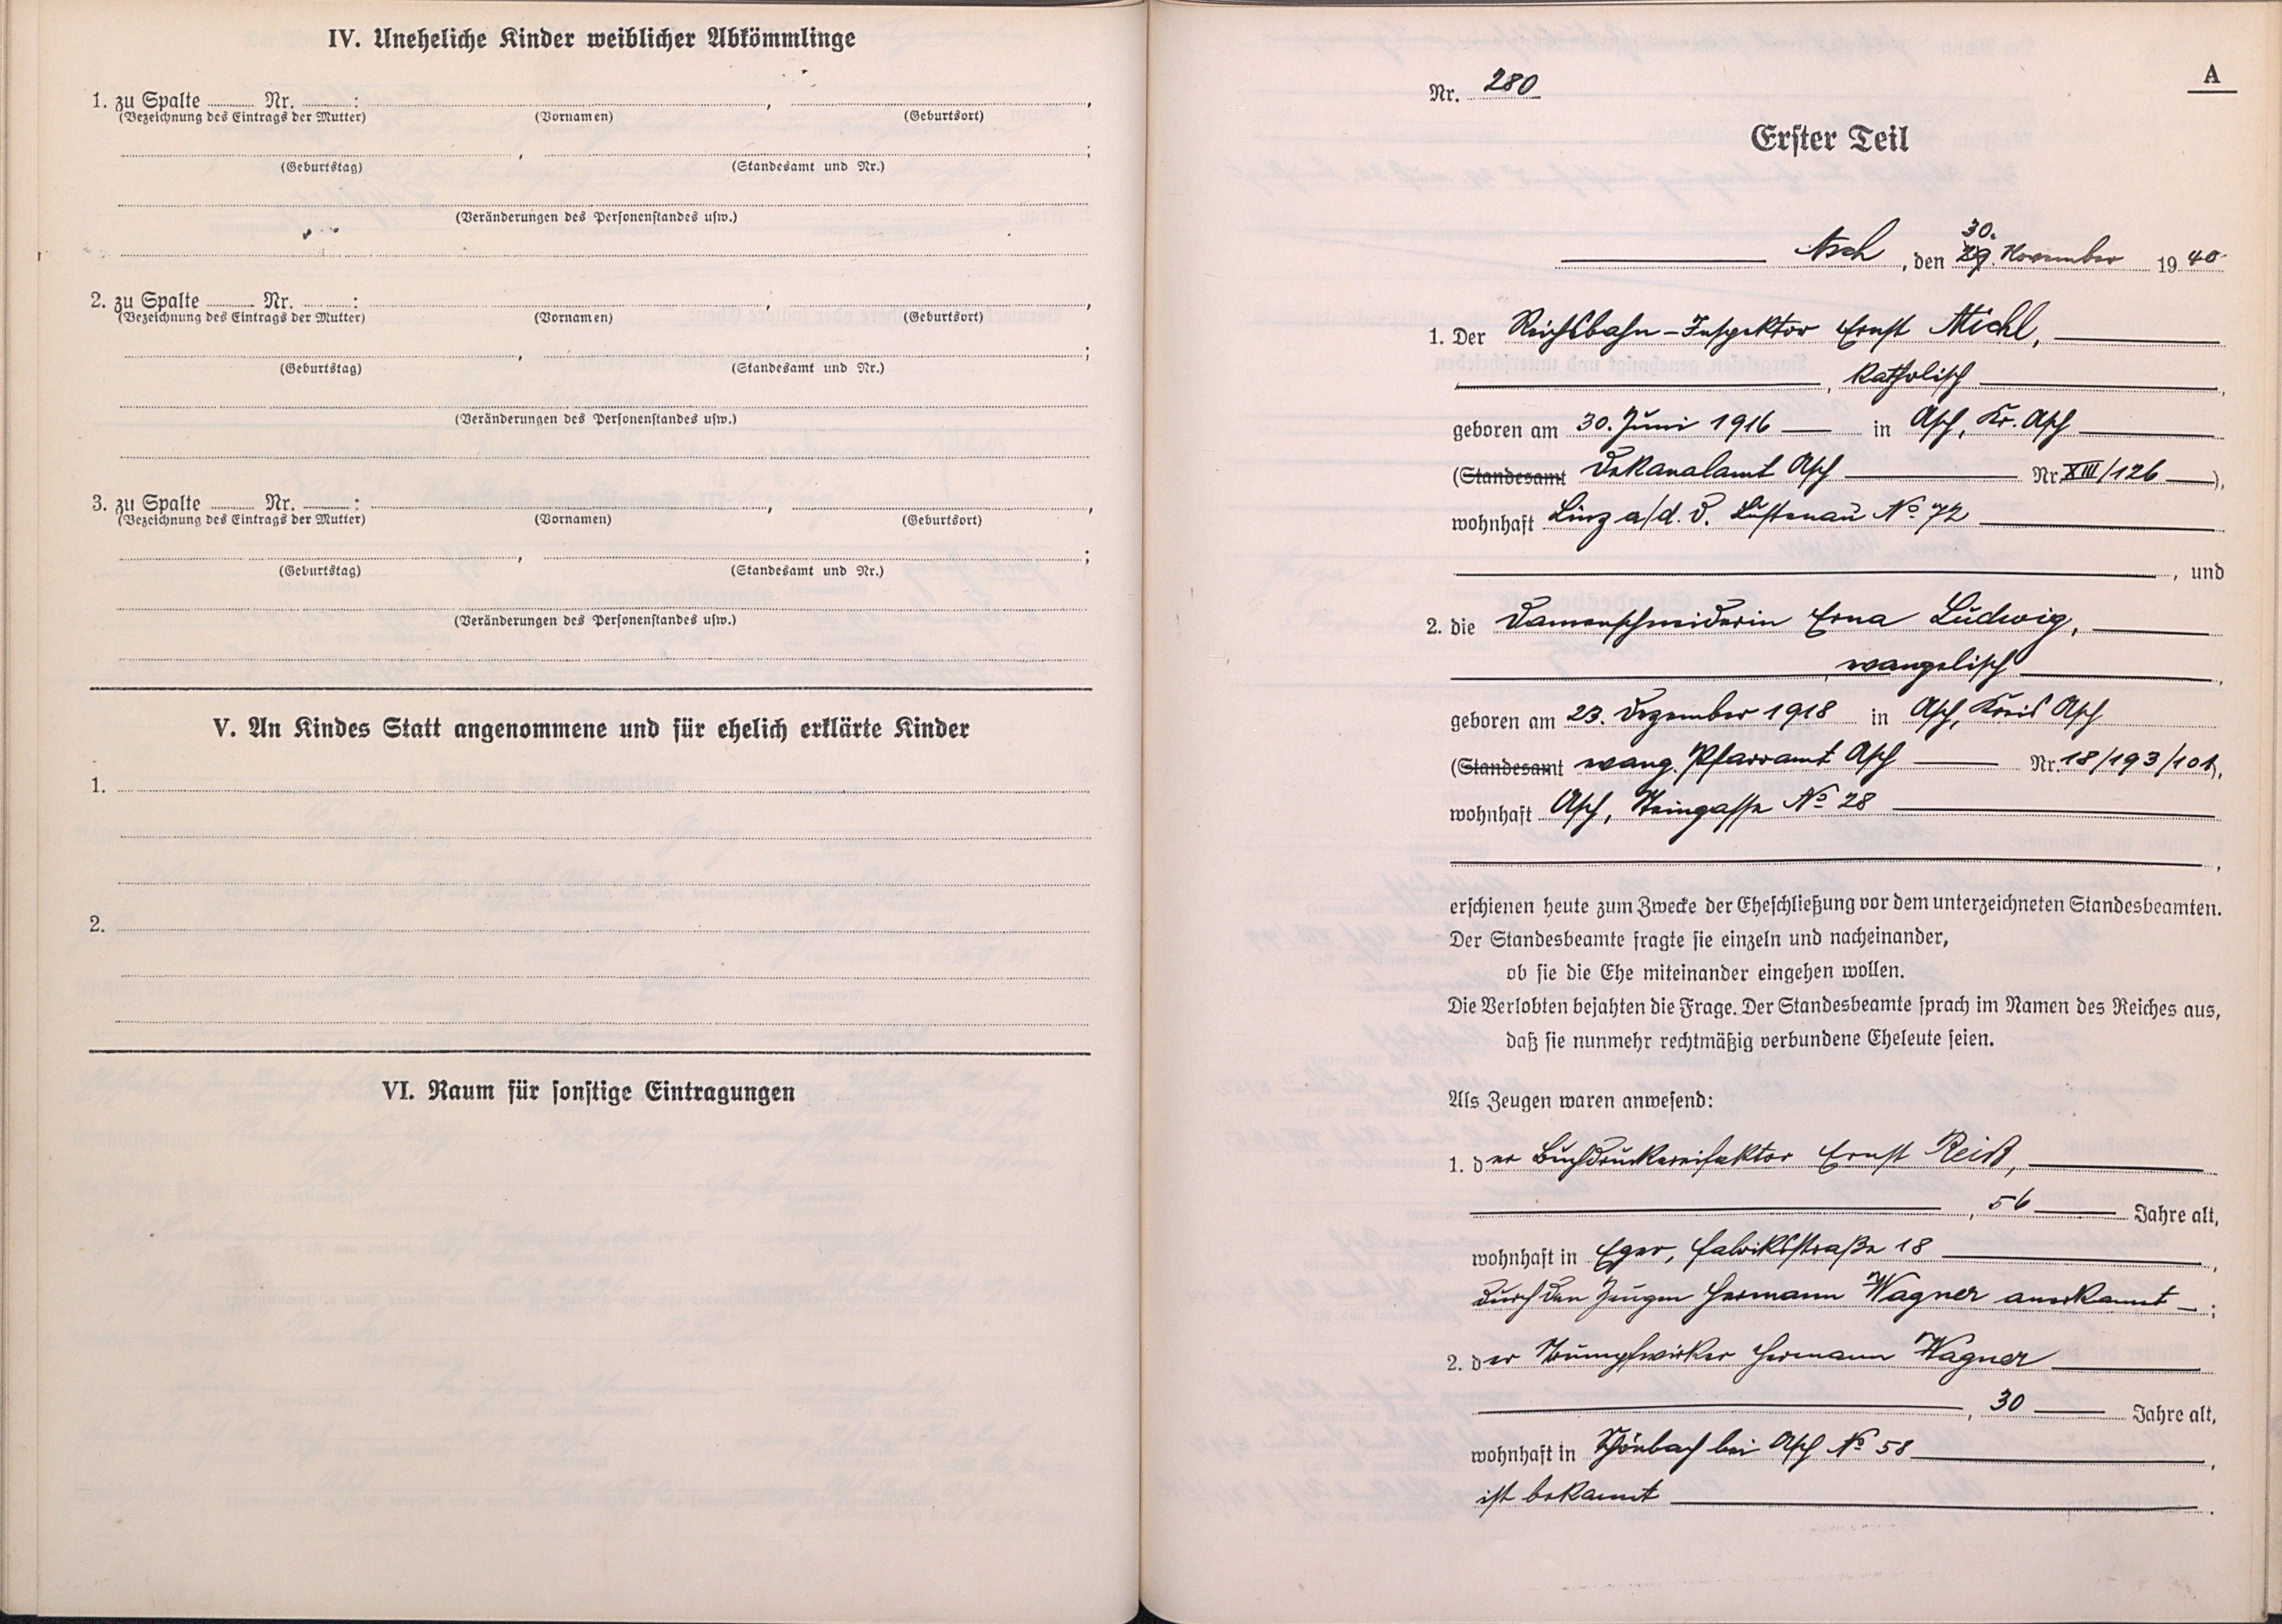 IV. Uneheliche Kinder weiblicher Abkömmlinge
1. zu Spalte ........ Nr. ........ :
(Bezeichnung des Eintrags der Mutter) (Vornamen) (Geburtsort)
(Geburtstag) (Standesamt und Nr.)
(Veränderungen des Personenstandes usw.)
2. zu Spalte ........ Nr. ........ :
(Bezeichnung des Eintrags der Mutter) (Vornamen) (Geburtsort)
(Geburtstag) (Standesamt und Nr.)
(Veränderungen des Personenstandes usw.)
3. zu Spalte ........ Nr. ........ :
(Bezeichnung des Eintrags der Mutter) (Vornamen) (Geburtsort)
(Geburtstag) (Standesamt und Nr.)
(Veränderungen des Personenstandes usw.)
V. An Kindes Statt angenommene und für ehelich erklärte Kinder
1.
2.
VI. Raum für sonstige Eintragungen
A
Nr. 280
Erster Teil
30.
Asch, den 29. November 1940
1. Der Reichsbahn-Inspektor Ernst Michl,
, katholisch,
geboren am 30. Juni 1916 in Asch, Kr. Asch
(Standesamt Dekanalamt Asch Nr XIII/126),
wohnhaft Linz a/d. D. Lustenau No 72
, und
2. die Damenschneiderin Erna Ludwig,
, evangelisch,
geboren am 23. Dezember 1918 in Asch, Kreis Asch
(Standesamt evang. Pfarramt Asch Nr. 18/193/101),
wohnhaft Asch, Steingasse No 28
,
erschienen heute zum Zwecke der Eheschließung vor dem unterzeichneten Standesbeamten.
Der Standesbeamte fragte sie einzeln und nacheinander,
ob sie die Ehe miteinander eingehen wollen.
Die Verlobten bejahten die Frage. Der Standesbeamte sprach im Namen des Reiches aus,
daß sie nunmehr rechtmäßig verbundene Eheleute seien.
Als Zeugen waren anwesend:
1. der Buchdruckereifaktor Ernst Reiß,
, 56 Jahre alt,
wohnhaft in Eger, Fabriksstraße 18,
durch den Zeugen Hermann Wagner anerkannt;
2. der Strumpfwirker Hermann Wagner
, 30 Jahre alt,
wohnhaft in Schönbach bei Asch No 58,
ist bekannt.